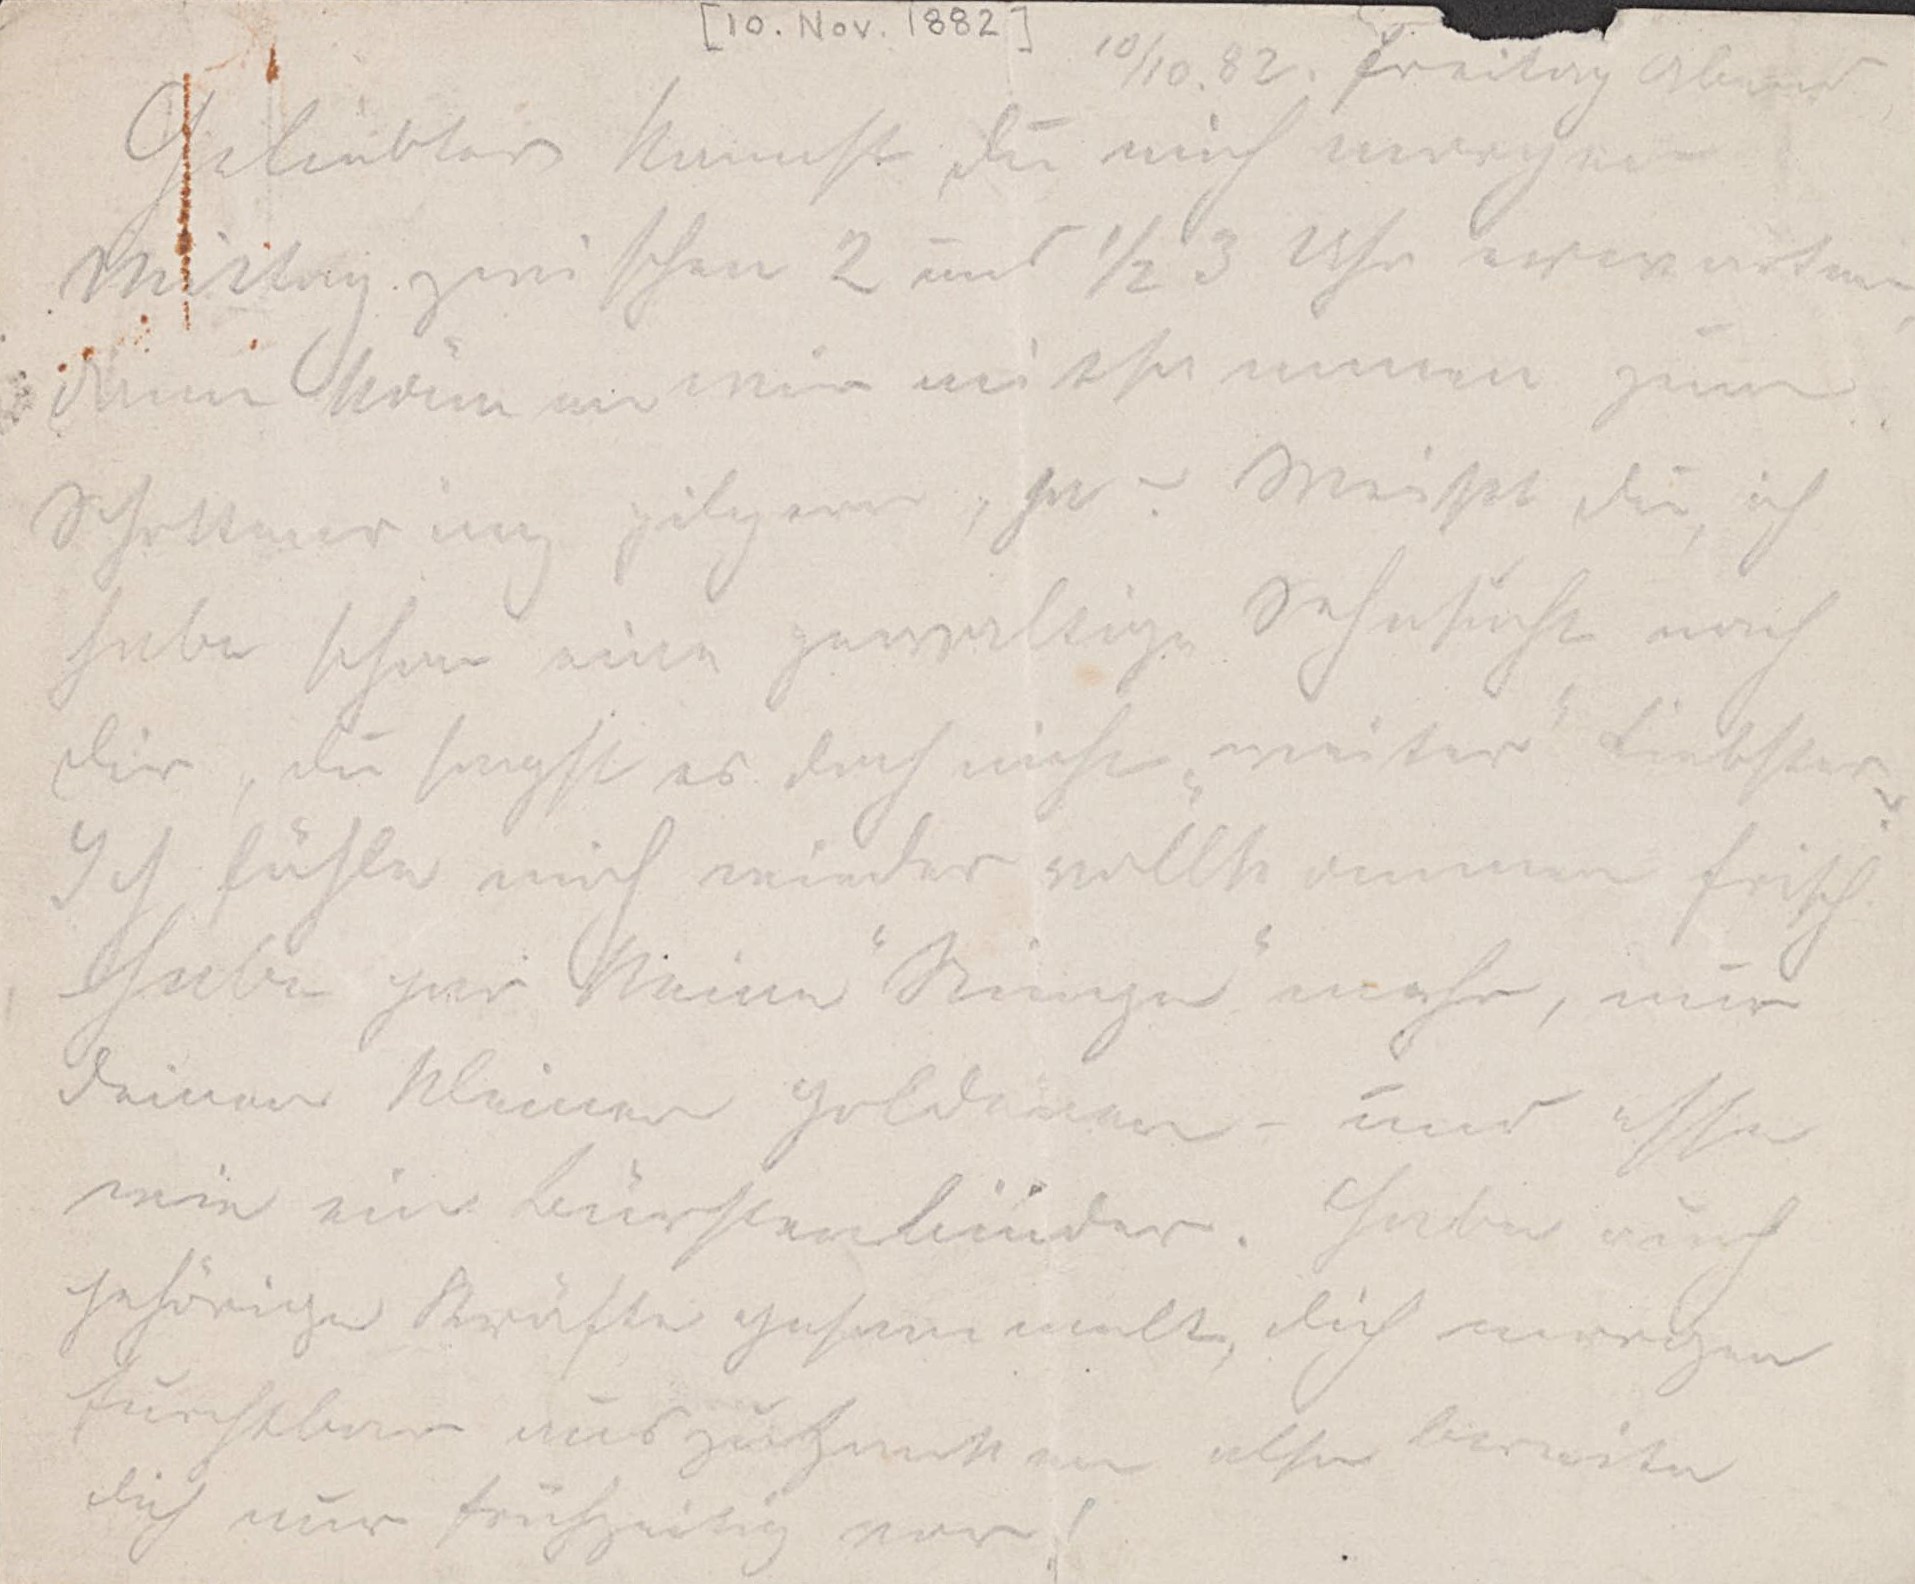 [10. Nov. 1882]
10/10. 82. Freitag Abend
Geliebter Kannst Du mich morgen
Mittag zwischen 2 und 1/2 3 Uhr erwarten,
dann können wir mitsammen zum
Schottenring pilgern, ja? Weißt Du, ich
habe schon eine gewaltige Sehnsucht nach
Dir, Du sagst es doch nicht „weiter“ Liebster?
Ich fühle mich wieder vollkommen frisch
habe gar keine "Ringe" mehr, nur
Deinen kleinen goldenen – und esse
wie ein Bürstenbinder. Habe auch
gehörige Kräfte gesammelt, Dich morgen
furchtbar auszuzanken also bereite
Dich nur frühzeitig vor!